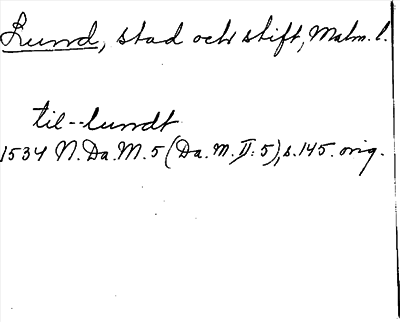 Lund, stad och stift, Malm. l.
til--lundt
1534 N.Da.M. 5 (Da.M. II:5), s. 145. orig.